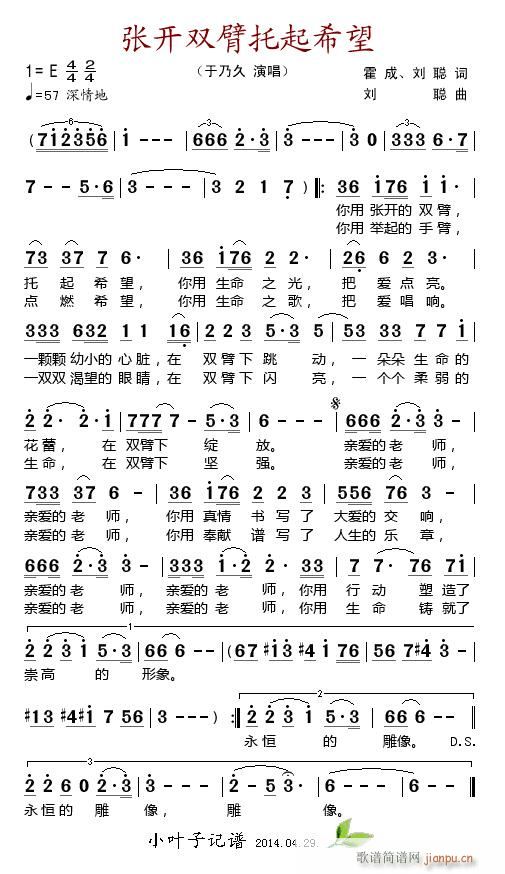 张开双臂托起希望
1= E 4/4 2/4 （于乃久 演唱） 霍 成、刘 聪 词
♩=57 深情地 刘 聪 曲
( 7 1 2 3 5 6 | 1 - - - | 6 6 6 2 · 3 | 3 - - - | 3 0 | 3 3 3 6 · 7
7 - - 5 · 6 | 3 - - - | 3 2 1 7 ) ‖: 3 6 1 7 6 1 1 |
你用 张开的 双 臂，
你用 举起的 手 臂，
7 3 3 7 7 6 · | 3 6 1 7 6 2 2 | 2 6 6 6 2 · |
托 起 希 望， 你用 生命 之 光， 把 爱 点 亮。
点 燃 希 望， 你用 生命 之 歌， 把 爱 唱 响。
3 3 3 6 3 2 1 1 1 6 | 2 2 3 5 · 3 | 5 5 3 3 3 7 7 1 |
一颗颗 幼小的 心 脏，在 双 臂 下 跳 动， 一 朵朵 生 命 的
一双双 渴望的 眼 睛，在 双 臂 下 闪 亮， 一 个个 柔 弱 的
2 2 · 2 · 1 | 7 7 7 7 - 5 · 3 | 6 - - - | 6 6 6 2 · 3 3 - |
花 蕾， 在 双臂下 绽 放。 亲爱的 老 师，
生 命， 在 双臂下 坚 强。 亲爱的 老 师，
7 3 3 3 7 6 - | 3 6 1 7 6 2 2 3 | 5 5 6 7 6 3 - |
亲爱的 老 师， 你用 真情 书 写 了 大爱的 交 响，
亲爱的 老 师， 你用 奉献 谱 写 了 人生的 乐 章，
6 6 6 2 · 3 3 - | 6 6 6 2 · 3 3 3 3 | 7 7 · 7 6 7 1 |
亲爱的 老 师， 亲爱的 老 师，你用 行 动 塑 造了
亲爱的 老 师， 亲爱的 老 师，你用 生 命 铸 就了
1
2 2 3 5 · 3 | 6 6 6 · - - | ( 6 7 #1 3 #4 1 7 6 5 6 |
崇高 的 形象。
2
#1 3 #4 #1 7 5 6 | 3 - - - ) :‖ 2 2 3 1 5 · 3 | 6 6 6 - - ‖
永 恒 的 雕 像。 D.S.
3
2 2 6 0 2 · 3 | 3 - - - | 2 - 5 3 · | 6 - - - ‖
永恒的 雕 像， 雕 像。
小叶子记谱 2014.04.29.
歌谱简谱网
jianpu.cn